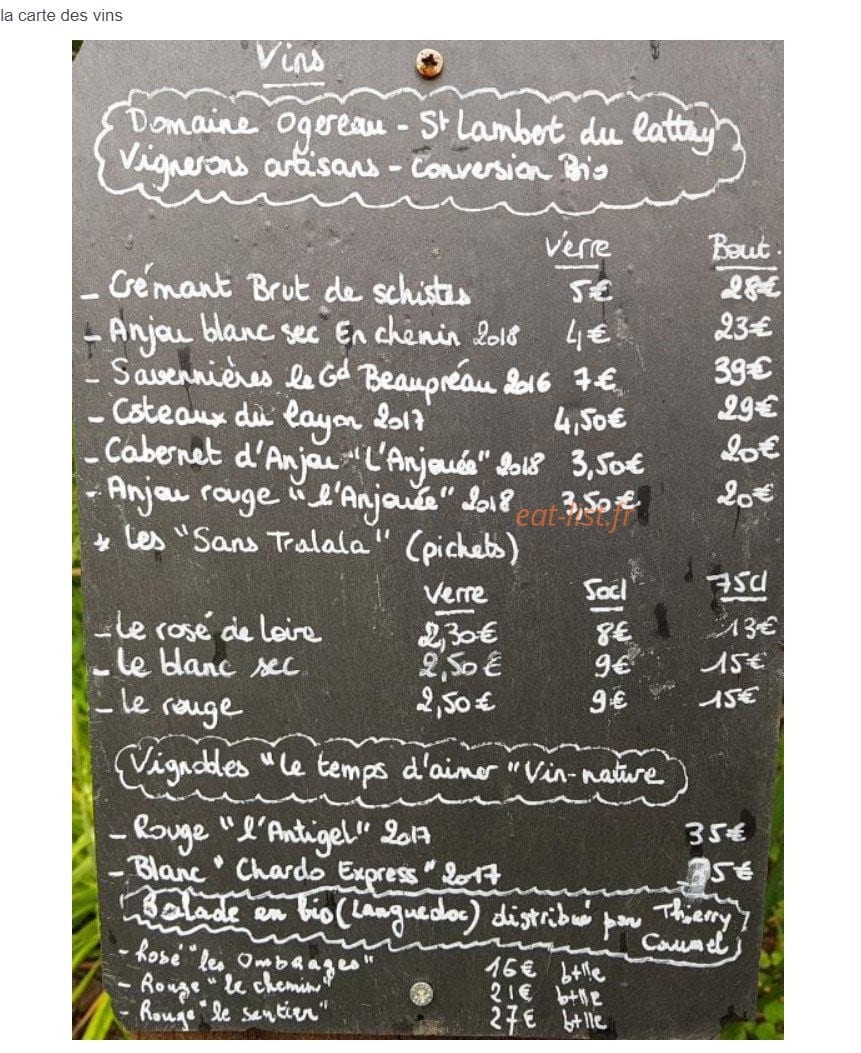 la carte des vins
Vins
Domaine Ogereau - St Lambert du lattay
Vignerons artisans - Conversion Bio
Verre Bout.
- Crémant Brut de schistes 5€ 28€
- Anjou blanc sec En chenin 2018 4€ 23€
- Savennières le Gd Beaupréau 2016 7€ 39€
- Coteaux du layon 2017 4,50€ 29€
- Cabernet d'Anjou "L'Anjouée" 2018 3,50€ 20€
- Anjou rouge "l'Anjouée" 2018 3,50€ 20€
eat-list.fr
* Les "Sans Tralala" (pichets)
Verre 50cl 75cl
- Le rosé de Loire 2,30€ 8€ 13€
- Le blanc sec 2,50€ 9€ 15€
- Le rouge 2,50€ 9€ 15€
Vignobles "Le temps d'aimer" Vin-nature
- Rouge "l'Antigel" 2017 35€
- Blanc "Chardo Express" 2017 35€
Balade en bio (Languedoc) distribué par Thierry
- Rosé "les Ombrages" 16€ btlle
- Rouge "le chemin" 21€ btlle
- Rouge "le sentier" 27€ btlle